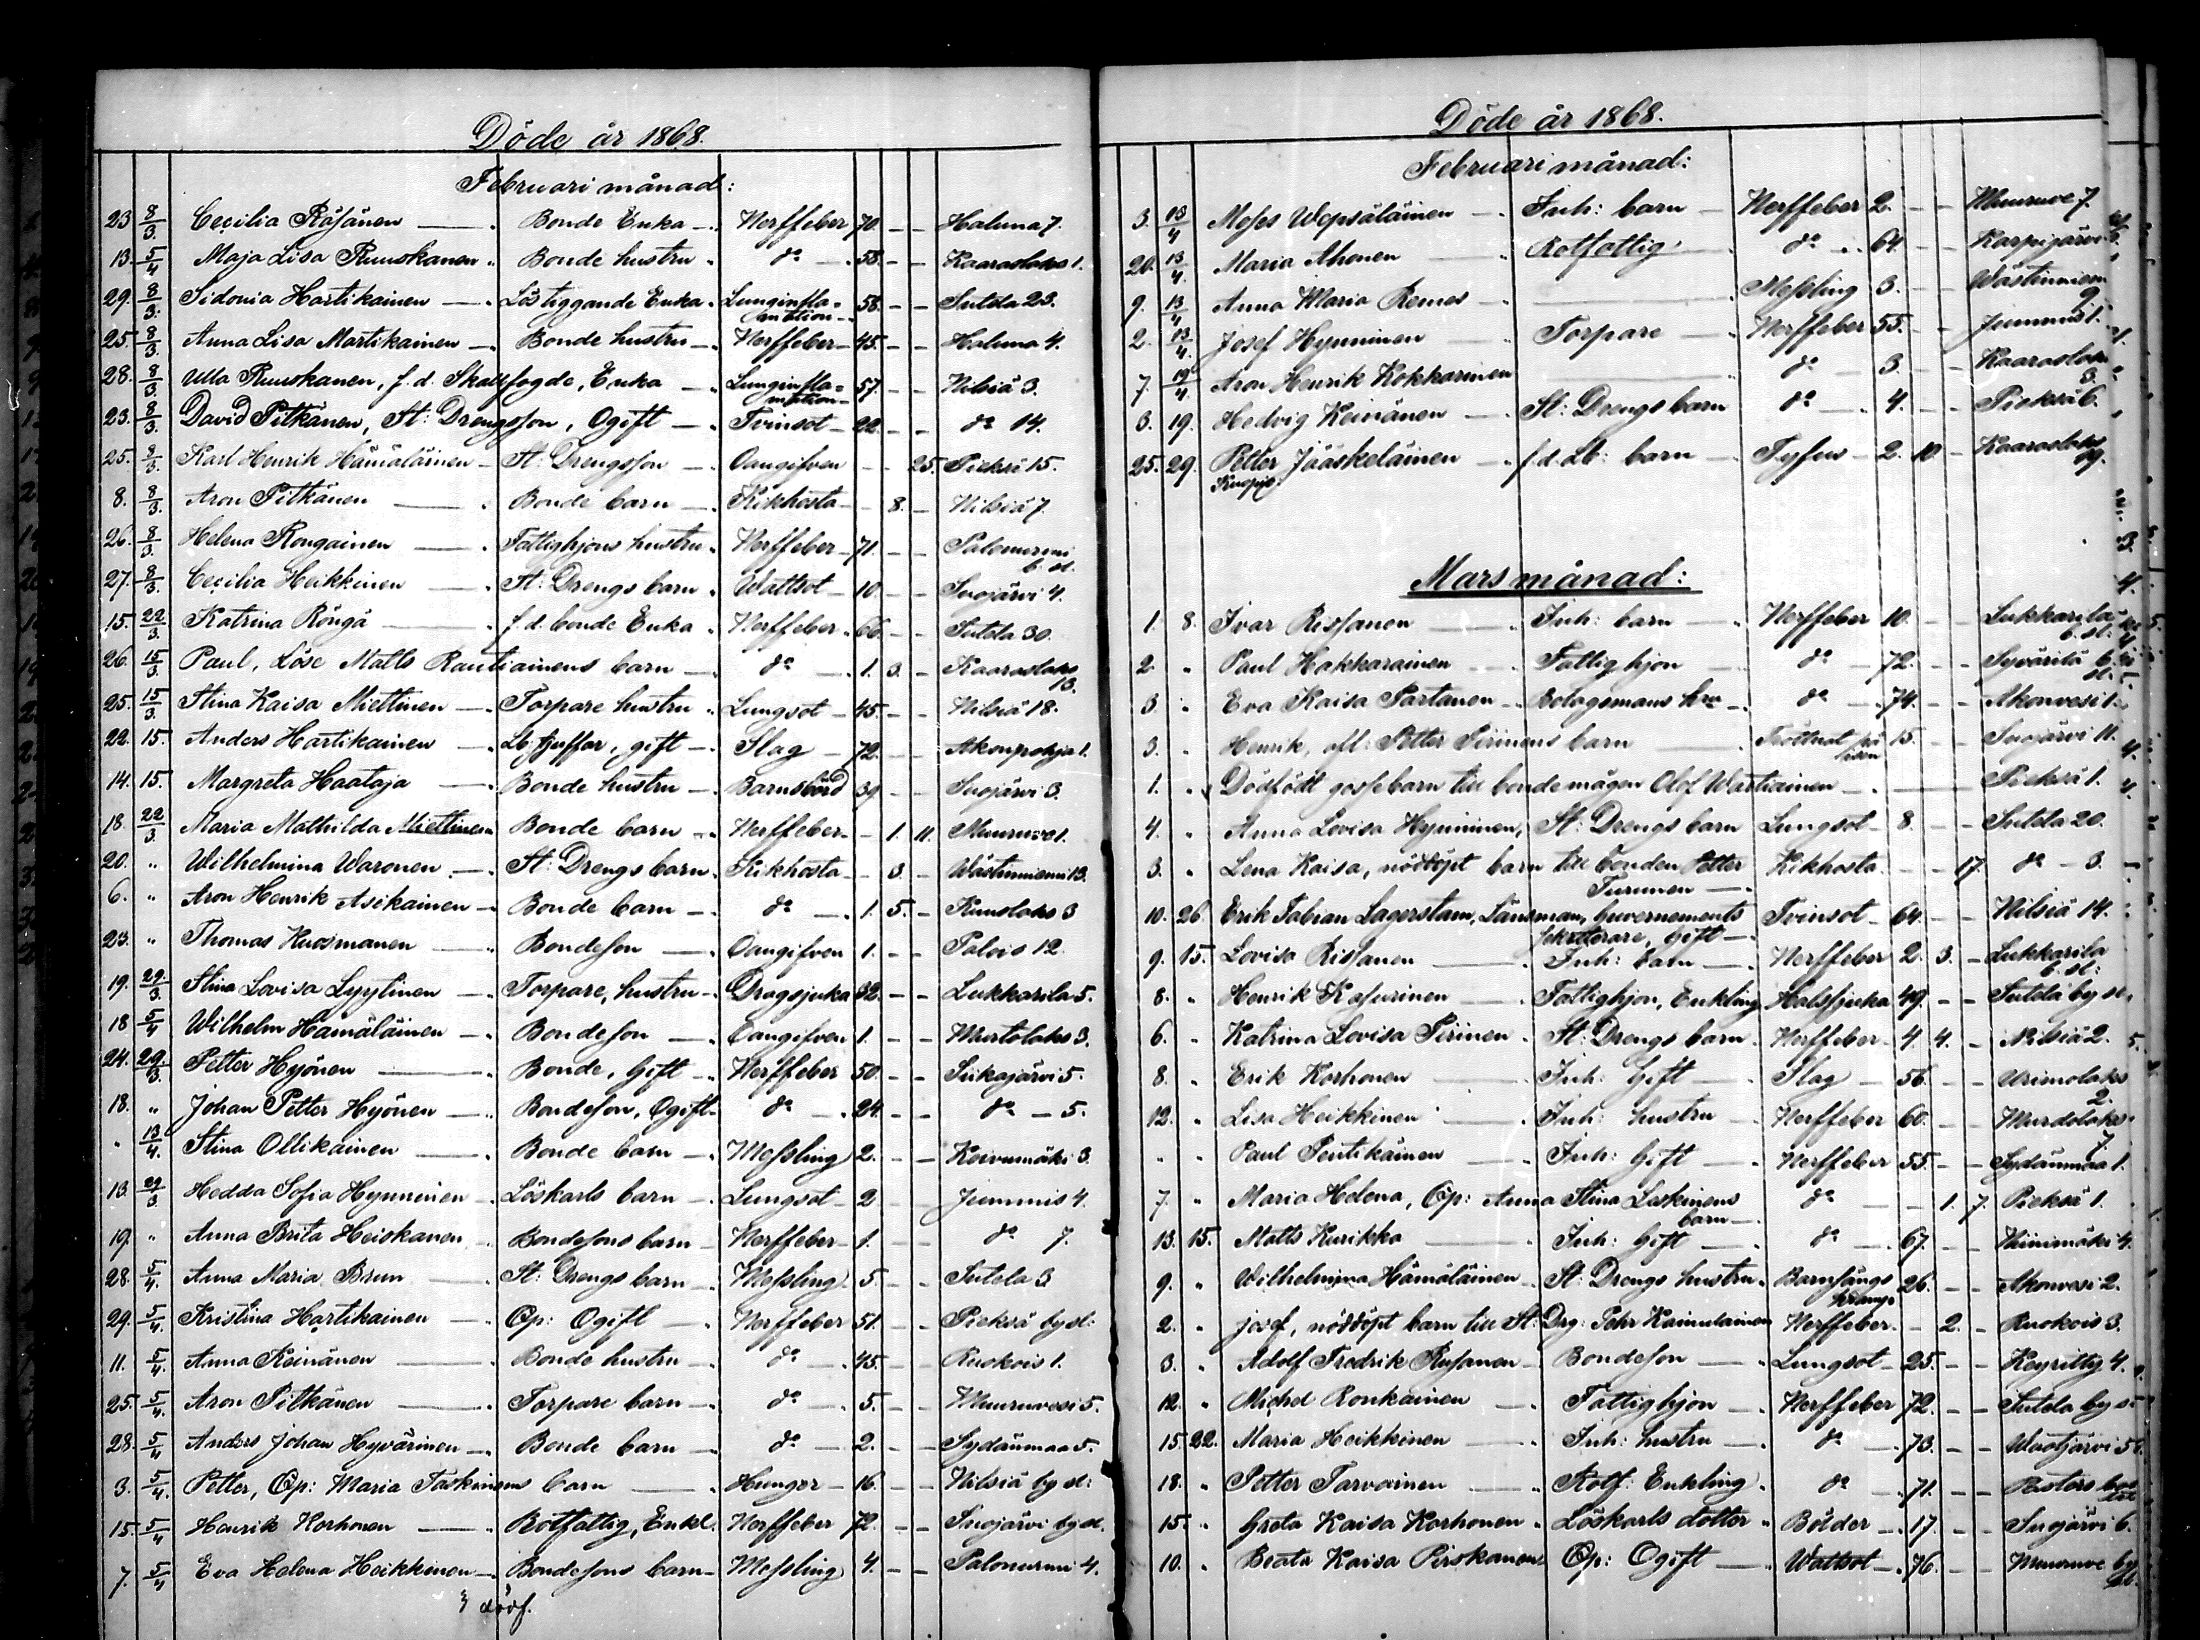 Döde år 1868.
Februari månad:
23 8/3. Cecilia Räsänen — Bonde Enka — Nerffeber 70. — — Haluna 7.
13. 5/4 Maja Lisa Ruuskanen Bonde hustru do — 53. — — Kaaraslaks 1.
29. 8/3. Sidonia Hartikainen — Löstiggande Enka Lunginfla= 58 — — Sutela 23.
mation —
25. 8/3. Anna Lisa Martikainen — Bonde hustru — Nerffeber — 45. — — Haluna 4.
28. 8/3. Ulla Ruuskanen, f.d. Skallfogde, Enka — Lunginfla= 57. — — Nilsiä 3.
mation —
23. 8/3 David Pitkänen, St: Drengsson, Ogift — Tvinsot — 22. — — do 14.
25. 8/3. Karl Henrik Hämäläinen — St: Drengsson — Oangifven — — 25. Pieksä 15.
8. 8/3. Aron Pitkänen — Bonde barn — Kikhosta — — 8. — Nilsiä 7.
26. 8/3. Helena Rongainen — Fattighjons hustru Nerffeber — 71. — — Palonurmi
b. st.
27. 8/3. Cecilia Heikkinen — St: Drengs barn Wattsot — 10. — — Suojärvi 4.
15. 22/3. Katrina Röngä — f.d. bonde Enka Nerffeber. — 66. — — Sutela 30.
26. 15/3. Paul, Löse Matts Rautiainens barn — do — 1. 3. — Kaaraslaks
13.
25. 15/3. Stina Kaisa Miettinen — Torpare hustru Lungsot — 45. — — Nilsiä 18.
22. 15. Anders Hartikainen — gift — Slag — 72. — — Akonpohja 1.
14. 15. Margreta Haataja — Bonde hustru — Barnsbörd 39 — — Suojärvi 3.
18. 22/3 Maria Mathilda Miettinen Bonde barn — Nerffeber — — 1. 11. Muuruve 1.
20. " Wilhelmina Waronen — St: Drengs barn Kikhosta — — 3. — Wästinniemi 13.
6. " Aron Henrik Asikainen — Bonde barn — do — 1. 5. — Ruuslaks 3
23. " Thomas Kuosmanen — Bondeson — Oangifven 1. — — Palois 12.
19. 29/3. Stina Lovisa Lyytinen — Torpare, hustru — Dragsjuka 32. — — Lukkarila 5.
18 5/4 Wilhelm Hämäläinen — Bondeson — Oangifven 1. — — Murtolaks 3.
24. 29/3. Petter Hyönen — Bonde, Gift — Nerffeber 50. — — Siikajärvi 5.
18. " Johan Petter Hyönen — Bondeson, Ogift — do — 24. — — do — 5.
" 13/4. Stina Ollikainen — Bonde barn — Messling 2. — — Koivumäki 3.
13. 29/3 Hedda Sofia Hynninen — Löskarls barn — Lungsot — 2 — — Jummis 4.
19. " Anna Brita Heiskanen Bondesons barn — Nerffeber — 1. — — do 7.
28. 5/4. Anna Maria Brun — St: Drengs barn — Messling 5 — — Sutela 3
29. 5/4. Kristina Hartikainen — Qp: Ogift — Nerffeber 51. — — Pieksä by st:
11. 5/4 Anna Keinänen — Bonde hustru — do — 45. — — Ruokois 1.
25. 5/4. Aron Pitkänen — Torpare barn — do — 5. — — Muuruvesi 5.
28. 5/4. Anders Johan Hyvärinen — Bonde barn — do — 2. — — Sydänmaa 5.
3. 5/4. Petter, Qp: Maria Taskinens barn — Hunger — 16. — — Nilsiä by st:
15. 5/4 Henrik Korhonen — Rotfattig, Enkl. Nerffeber 72. — — Suojärvi by st.
7. 5/4 Eva Helena Heikkinen — Bondesons barn — Messling 4. — — Palonurmi 4.
3 dödf.
Döde år 1868.
Februari månad:
3. 13/4 Moses Wepsäläinen — Inh: barn — Nerffeber 2. — — Muuruve 7.
20. 13/4. Maria Ahonen — Rotfattig — do — 64. — — Karpijärvi
9. 13/4 Anna Maria Remes — Messling 3. — — Wästinniemi
9.
2. 13/4. Josef Hynninen — Torpare — Nerffeber 55. — — Jummis 1.
7. 19/4 Aron Henrik Kokkarinen — do — 3. — — Kaaraslaks
3.
3. 19. Hedvig Keinänen — St: Drengs barn do — 4. — — Pieksä 6.
25. 29. Petter Jääskeläinen — f.d. Lb: barn — Tyfus — 2. 10 — Kaaraslaks
19.
Kuopio
Mars månad:
1. 8. Ivar Rissanen — Inh: barn — Nerffeber 10. — — Lukkarila
b. st:
2. " Paul Hakkarainen — Fattighjon — do — 72. — — Syvärilä b.
st.
3 " Eva Kaisa Partanen — Bolagsmans h:ru — do — 74. — — Akonvesi 1.
3. " Henrik, afl: Petter Pirinens barn — Tröttnat 15. — — Suojärvi 11.
1. " Dödfödt gossebarn till bondemågen Olof Wartiainen — Pieksä 1.
4. " Anna Lovisa Hynninen, St: Drengs barn Lungsot — 8. — — Sutela 20.
3. " Lena Kaisa, nöddöpt barn till bonden Petter Kikhosta — — 17. do — 3.
Turunen —
10. 26. Erik Fabian Lagerstam, Länsman, guvernements Tvinsot — 64. — — Nilsiä 14.
sekreterare, Gift —
9. 15. Lovisa Rissanen — Inh: barn — Nerffeber 2. 3. — Lukkarila
b. st:
8. " Henrik Kasurinen — Fattighjon, Enkling Halssjuka 49. — — Sutela by st.
6. " Katrina Lovisa Pirinen St: Drengs barn Nerffeber — 4. 4. — Nilsiä 2.
8. " Erik Korhonen — Inh: Gift — Slag — 56. — — Urimolaks
2.
12. " Lisa Heikkinen — Inh: hustru — Nerffeber 60. — — Murdolaks
7.
" " Paul Pentikäinen — Inh: Gift — Nerffeber 55. — — Sydänmaa 1.
7. " Maria Helena, Qp: Anna Stina Leskinens do — — 1. 7. Pieksä 1.
barn —
13. 15. Matts Kurikka — Inh: Gift — do — 67. — — Kinimäki 4.
9. " Wilhelmina Hämäläinen St: Drengs hustru Barnsängs 26. — — Akonvesi 2.
kramp
2. " Josef, nöddöpt barn till St: Drg: Pehr Kainulainen Nerffeber — — 2. — Ruokois 3.
3. " Adolf Fredrik Rusanen — Bondeson — Lungsot — 25. — — Keyritty 4.
12. " Michel Ronkainen — Fattighjon — Nerffeber 72. — — Sutela by st
15. 22. Maria Heikkinen — Inh: hustru — do — 73. — — Wuotjärvi 5
18. " Petter Tarvainen — Rotf: Enkling do — 71. — —
15. " Greta Kaisa Korhonen Löskarls dotter Bölder — 17. — — Suojärvi 6.
10. " Beata Kaisa Pirskanen Qp: Ogift — Wattsot — 76. — — Muuruve by
st.